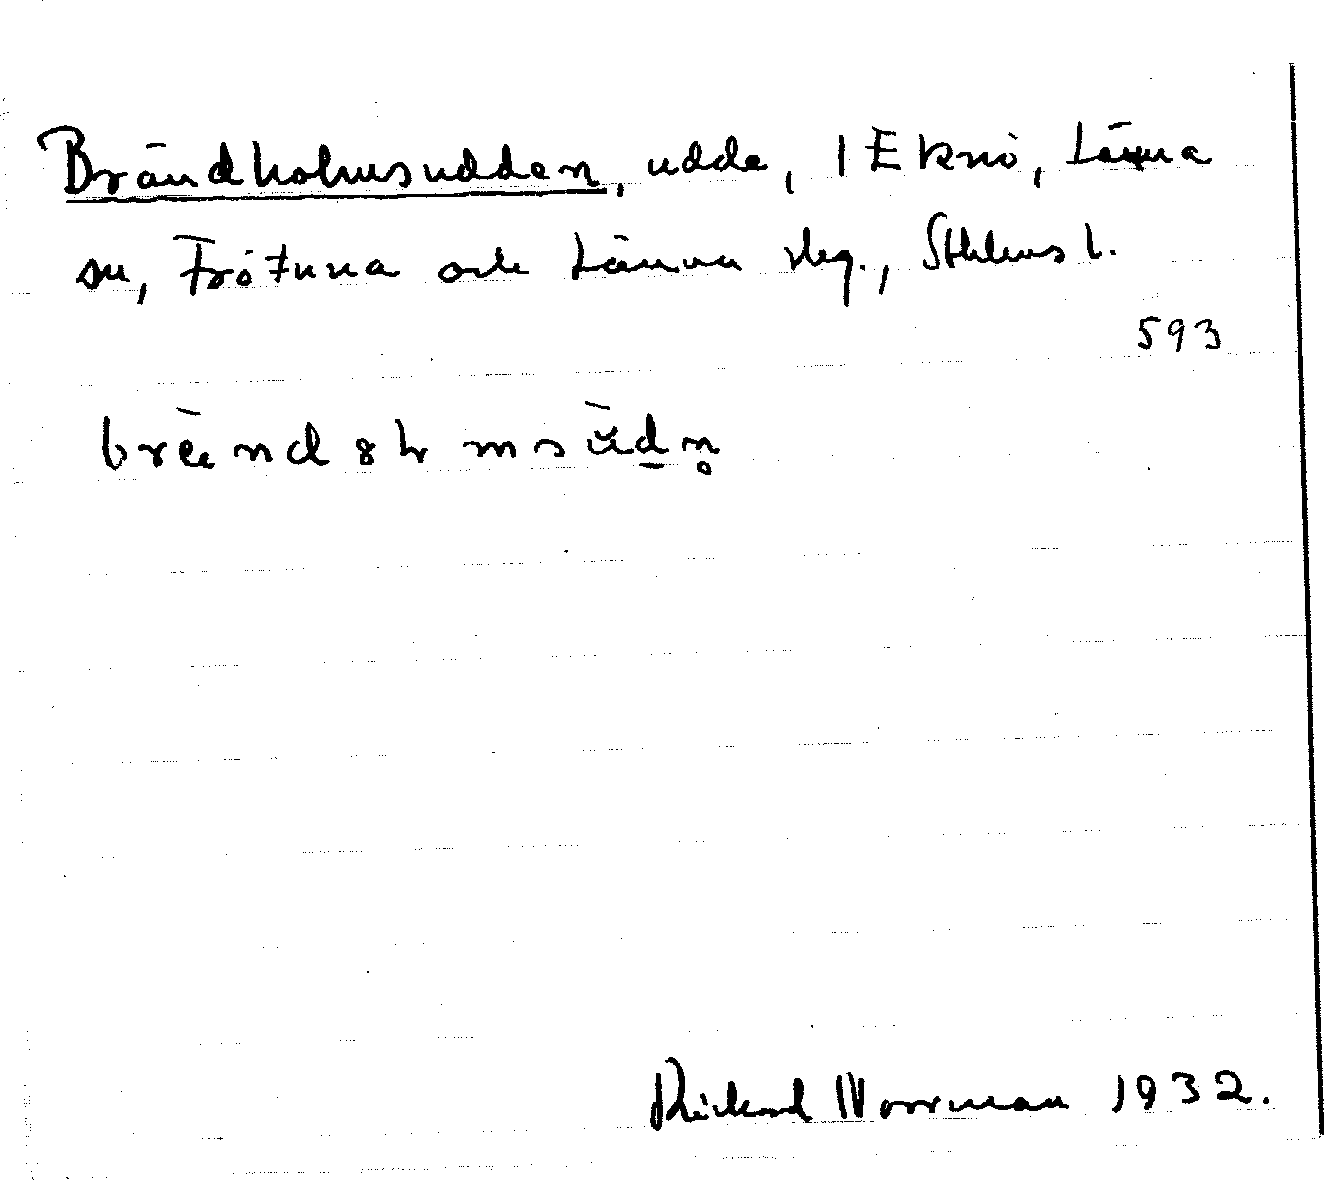 Brändholmsudden, udde, 1 Eknö, Länna
sn, Frötuna och Länna sklg., Sthlms l.
593
brändhmsudn
Rickard Norrman 1932.